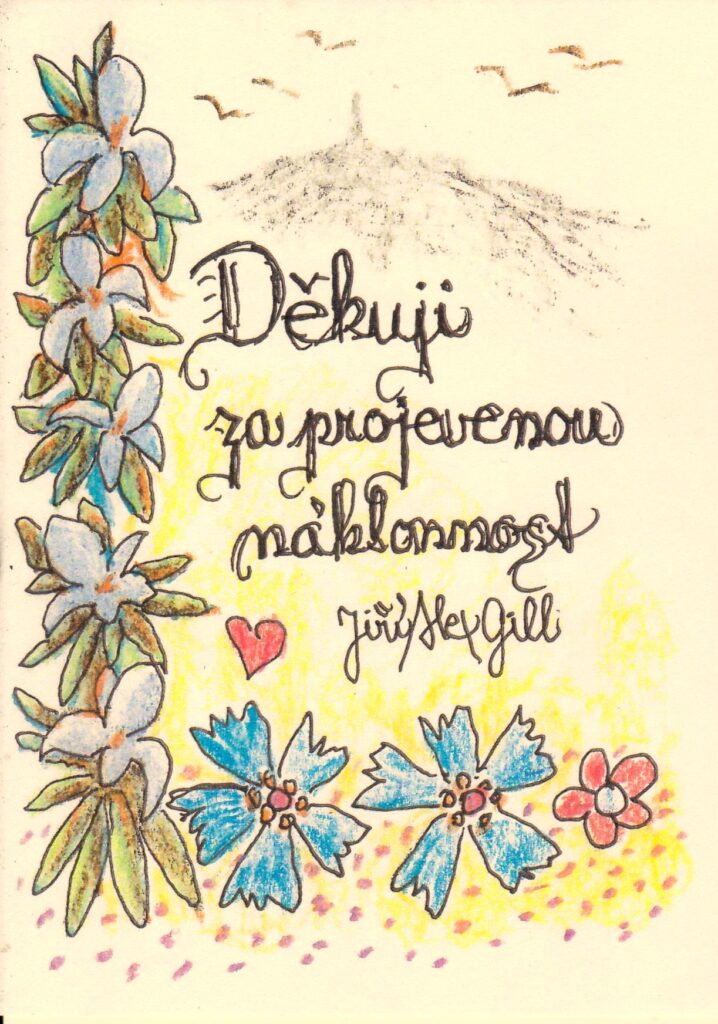 Děkuji
za projevenou
náklonnost
Jiří Alex Gill